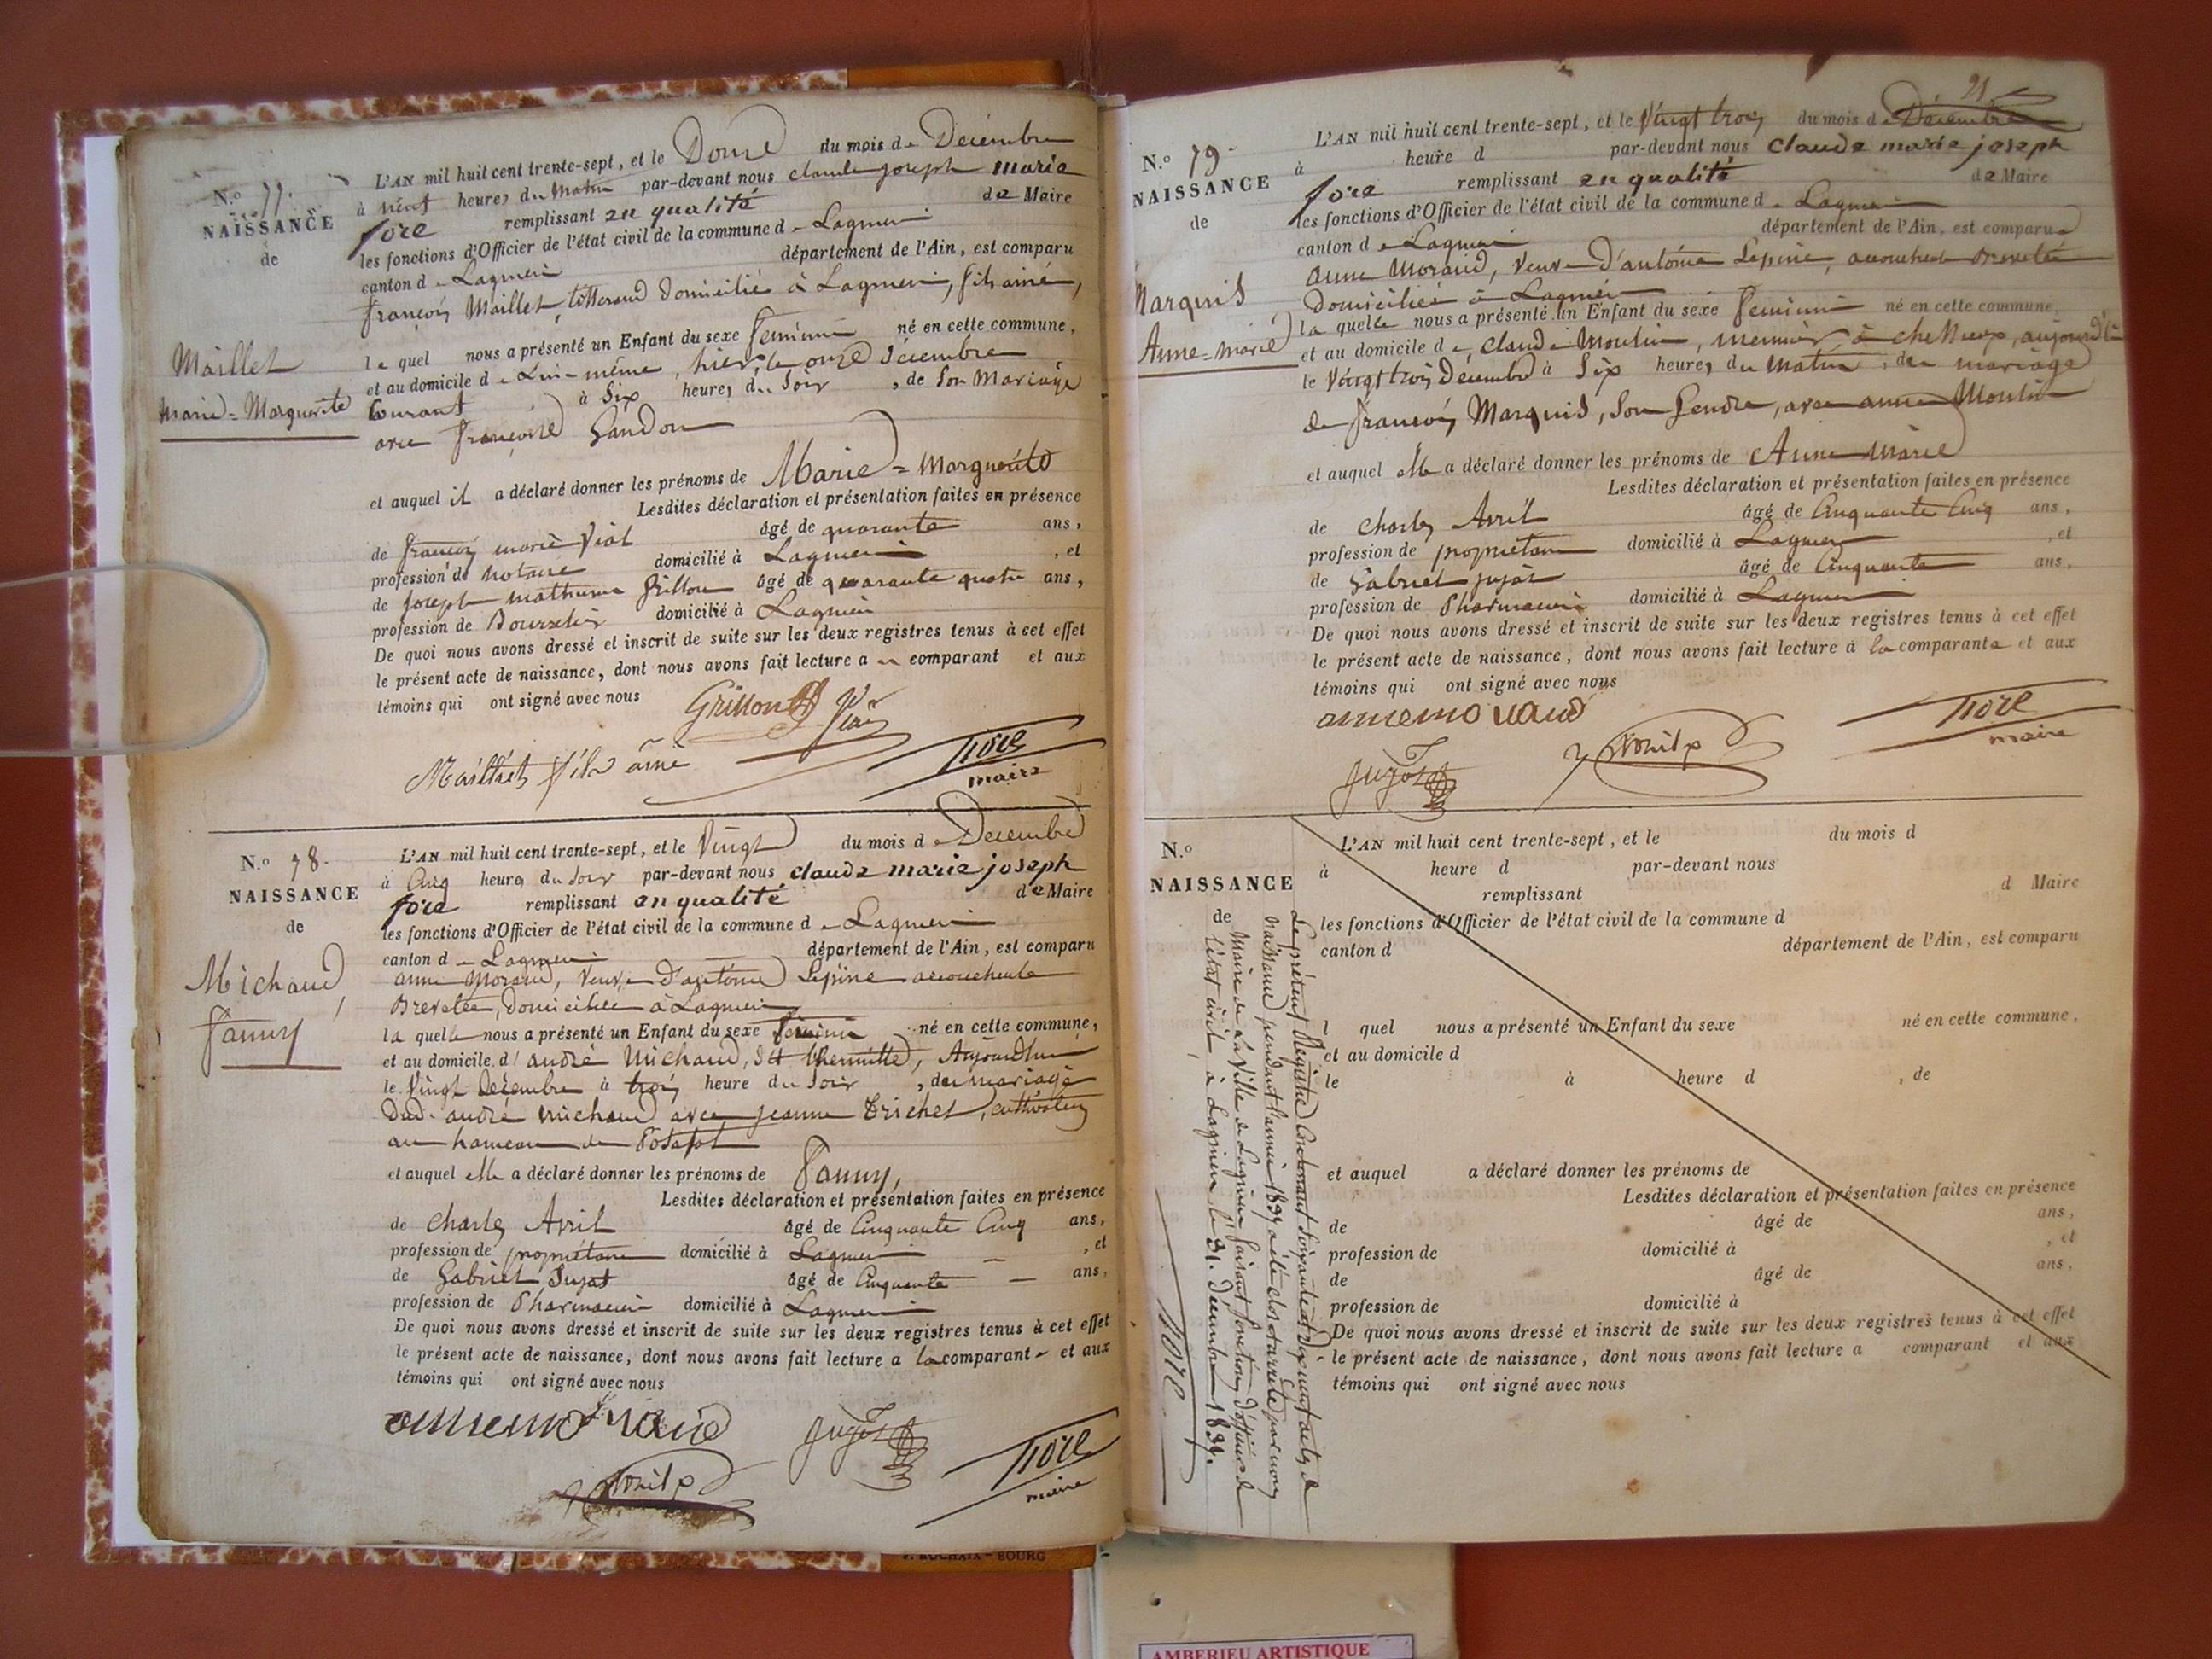 N.º 77.
NAISSANCE
de
Maillet
Marie=Marguerite
L'AN mil huit cent trente-sept, et le Douze du mois de Décembre
à neuf heures du Matin par-devant nous claude joseph marie
fore remplissant en qualité de Maire
les fonctions d'Officier de l'état civil de la commune de Lagnieu
canton de Lagnieu département de l'Ain, est comparu
françois Maillet, tisserand domicilié à Lagnieu, fils ainé,
le quel nous a présenté un Enfant du sexe feminin né en cette commune,
et au domicile de Lui-même, hier, le onze décembre
Courant à Six heures du Soir, de Son Mariage
avec françoise Gandon
et auquel il a déclaré donner les prénoms de Marie=Marguerite
Lesdites déclaration et présentation faites en présence
de françois marie Vial âgé de quarante ans,
profession de notaire domicilié à Lagnieu, et
de Joseph mathurin Grillon âgé de quarante quatre ans,
profession de Bourrelier domicilié à Lagnieu
De quoi nous avons dressé et inscrit de suite sur les deux registres tenus à cet effet
le présent acte de naissance, dont nous avons fait lecture a u comparant et aux
témoins qui ont signé avec nous
Grillon Vial
Maillet fils ainé fore
maire
N.º 78.
NAISSANCE
de
Michaud,
fanny
L'AN mil huit cent trente-sept, et le Vingt du mois de Decembre
à Cinq heures du soir par-devant nous claude marie joseph
fore remplissant en qualité de Maire
les fonctions d'Officier de l'état civil de la commune de Lagnieu
canton de Lagnieu département de l'Ain, est comparu
anne Morand, Veuve d'antoine Lepine accoucheuse
Brevetée, Domiciliée à Lagnieu
la quelle nous a présenté un Enfant du sexe féminin né en cette commune,
et au domicile d'andré Michaud, dit thermitte, Aujourdhui
le Vingt Décembre à trois heure du Soir, du mariage
Dud. andré Michaud avec jeanne Trichet, cultivateurs
au hameau de Posafol
et auquel elle a déclaré donner les prénoms de Fanny,
Lesdites déclaration et présentation faites en présence
de Charles Avril âgé de Cinquante Cinq ans,
profession de propriétaire domicilié à Lagnieu, et
de Gabriel Jujat âgé de Cinquante ans,
profession de Pharmacien domicilié à Lagnieu
De quoi nous avons dressé et inscrit de suite sur les deux registres tenus à cet effet
le présent acte de naissance, dont nous avons fait lecture a la comparante et aux
témoins qui ont signé avec nous
anne morand Jujat fore
maire
Avril
21
N.º 79.
NAISSANCE
de
Marquis
Anne=marie
L'AN mil huit cent trente-sept, et le Vingt trois du mois de Décembre
à heure d par-devant nous claude marie joseph
fore remplissant en qualité de Maire
les fonctions d'Officier de l'état civil de la commune de Lagnieu
canton de Lagnieu département de l'Ain, est comparue
anne Morand, Veuve D'antoine Lepine, accoucheuse brevetée
Domiciliée à Lagnieu
la quelle nous a présenté un Enfant du sexe feminin né en cette commune,
et au domicile de Claude Moulin, meunier, à chelleux, aujourd'hui
le Vingt trois Decembre à Six heures du Matin, du mariage
de françois Marquis, Son Gendre, avec anne Moulin
et auquel elle a déclaré donner les prénoms de Anne Marie
Lesdites déclaration et présentation faites en présence
de Charles Avril âgé de Cinquante Cinq ans,
profession de propriétaire domicilié à Lagnieu, et
de Gabriel jujat âgé de Cinquante ans,
profession de Pharmacien domicilié à Lagnieu
De quoi nous avons dressé et inscrit de suite sur les deux registres tenus à cet effet
le présent acte de naissance, dont nous avons fait lecture à la comparante et aux
témoins qui ont signé avec nous
anne morand fore
maire
Jujat Avril
N.º
NAISSANCE
de
L'AN mil huit cent trente-sept, et le du mois d
à heure d par-devant nous
remplissant d Maire
les fonctions d'Officier de l'état civil de la commune d
canton d département de l'Ain, est comparu
l quel nous a présenté un Enfant du sexe né en cette commune,
et au domicile d
le à heure d, de
et auquel a déclaré donner les prénoms de
Lesdites déclaration et présentation faites en présence
de âgé de ans,
profession de domicilié à, et
de âgé de ans,
profession de domicilié à
De quoi nous avons dressé et inscrit de suite sur les deux registres tenus à cet effet
le présent acte de naissance, dont nous avons fait lecture a comparant et aux
témoins qui ont signé avec nous
Le présent Registre Contenant Soixante et Dix neuf actes de
Naissance pendant l'année 1837 a été clos et arrêté par nous
Maire de la Ville de Lagnieu faisant fonctions d'officier de
l'état civil à Lagnieu le 31. Décembre 1837.
fore
BOURG
AMBERIEU ARTISTIQUE